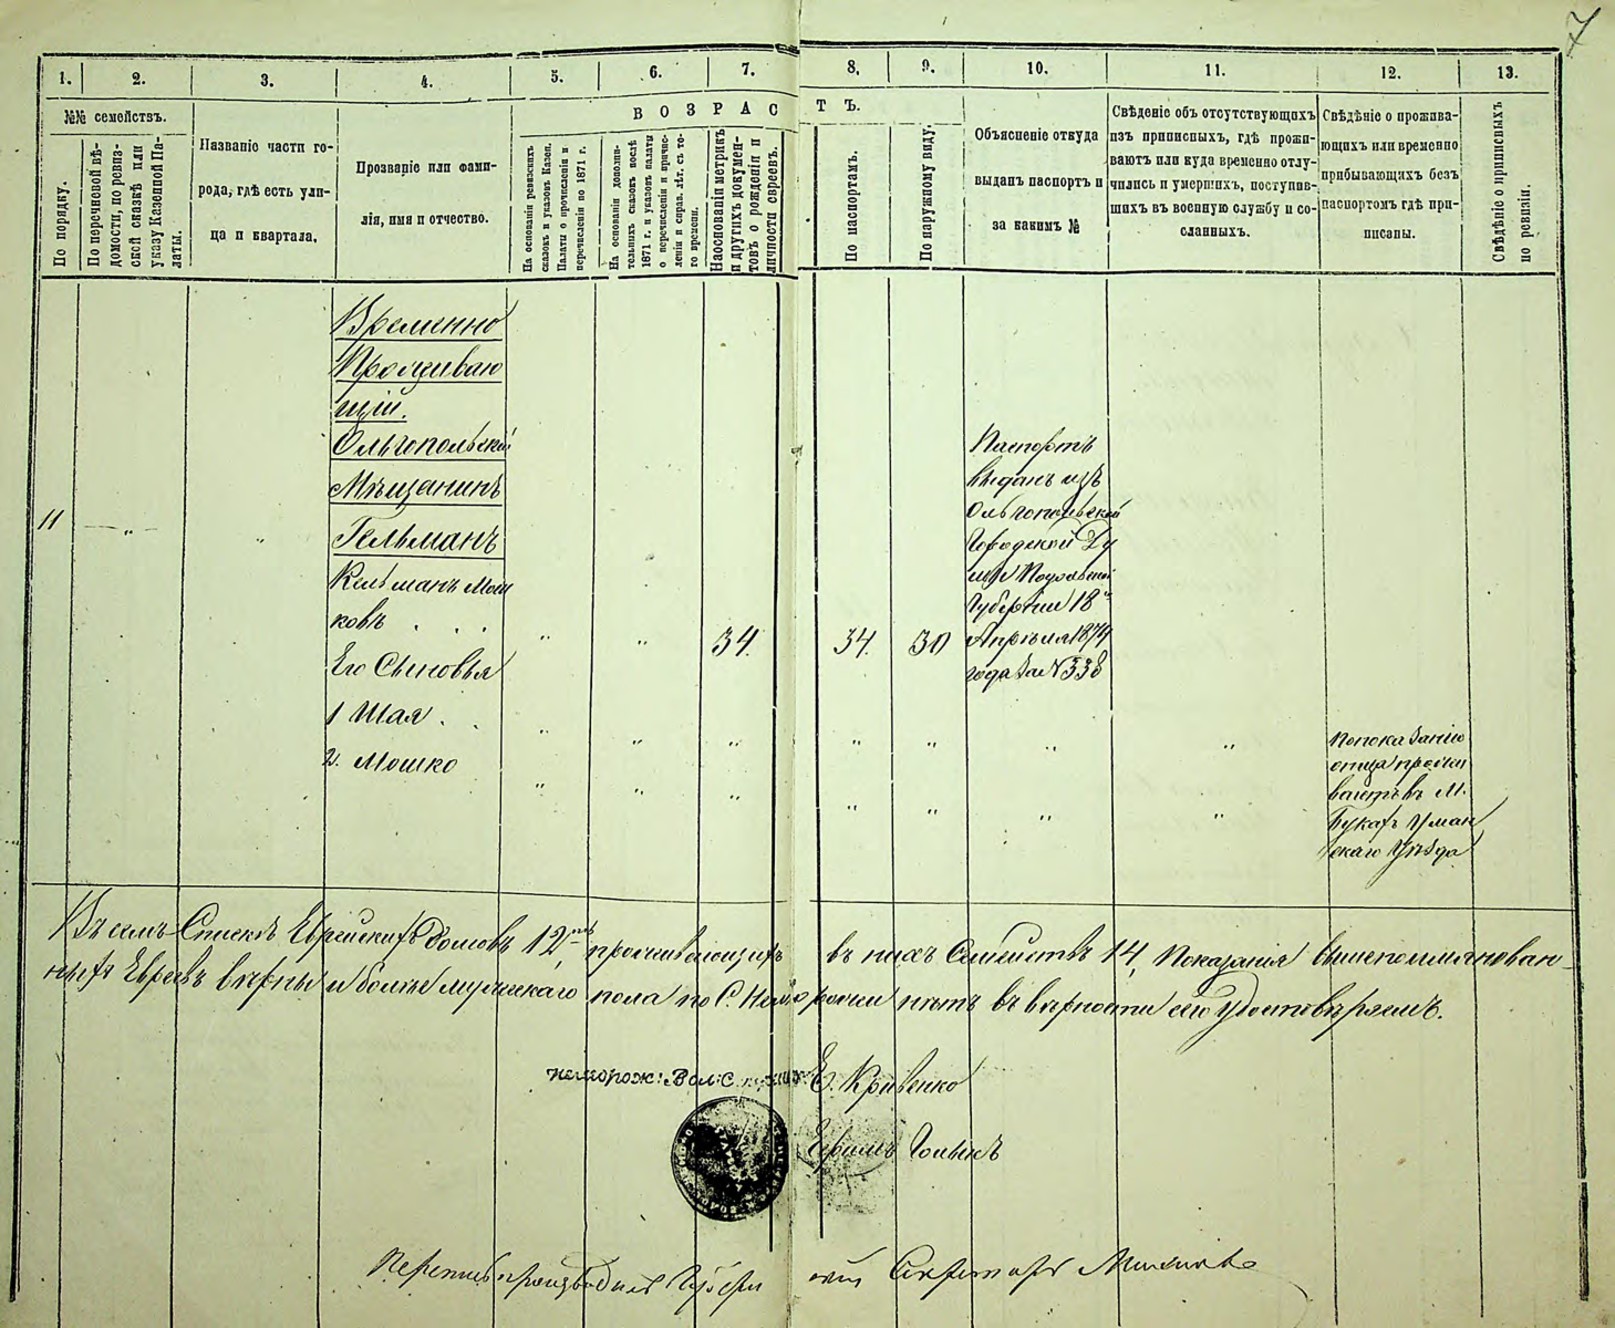 7
1. 2. 3. 4. 5. 6. 7. 8. 9. 10. 11. 12. 13.
№№ семействъ.
По порядку.
По перечневой вѣ-
домости, по ревиз-
ской сказкѣ или
указу Казенной Па-
латы.
Названіе части го-
рода, гдѣ есть ули-
ца и квартала.
Прозваніе или фами-
лія, имя и отчество.
ВОЗРАСТЪ.
На основаніи ревизскихъ
сказокъ и указовъ Казен.
Палаты о причисленіи и
перечисленіи по 1871 г.
На основаніи дополни-
тельныхъ сказокъ послѣ
1871 г. и указовъ палаты
о перечисленіи и причис-
леніи и справ. лѣт. съ то-
го времени.
На основаніи метрикъ
и другихъ докумен-
товъ о рожденіи и
личности евреевъ.
По паспортамъ.
По наружному виду.
Объясненіе откуда
выданъ паспортъ и
за какимъ №
Свѣденіе объ отсутствующихъ
изъ приписныхъ, гдѣ прожи-
ваютъ или куда временно отлу-
чились и умершихъ, поступив-
шихъ въ военную службу и со-
сланныхъ.
Свѣдѣніе о прожива-
ющихъ или временно
прибывающихъ безъ
паспортомъ гдѣ при-
писаны.
Свѣдѣніе о приписныхъ
по ревизіи.
Временно
Проживаю
щій.
Ольгопольскій
Мѣщанинъ
11 „ „ Гельманъ
Кельманъ Мош
ковъ . . . „ „ 34. 34. 30
Паспортъ
выданъ изъ
Ольгопольской
Городской Ду
мы Подольской
Губерніи 18
Апрѣля 1874
года за №338
Его Сыновья
1 Шая . . „ „ „ „ „ „ „
2. Мошко „ „ „ „ „ „ „
По показанію
отца прожи
ваетъ въ М.
Букахъ Уман
скаго Уѣзда
Въ семъ Спискѣ Еврейскихъ домовъ 12, проживающихъ въ нихъ Семействъ 14, Показанія вышепоименован-
ныхъ Евреевъ вѣрны и болѣе мужескаго пола по С. нѣтъ въ вѣрности сего удостовѣряемъ.
Е. Кривенко
Перепись производилъ Секретарь